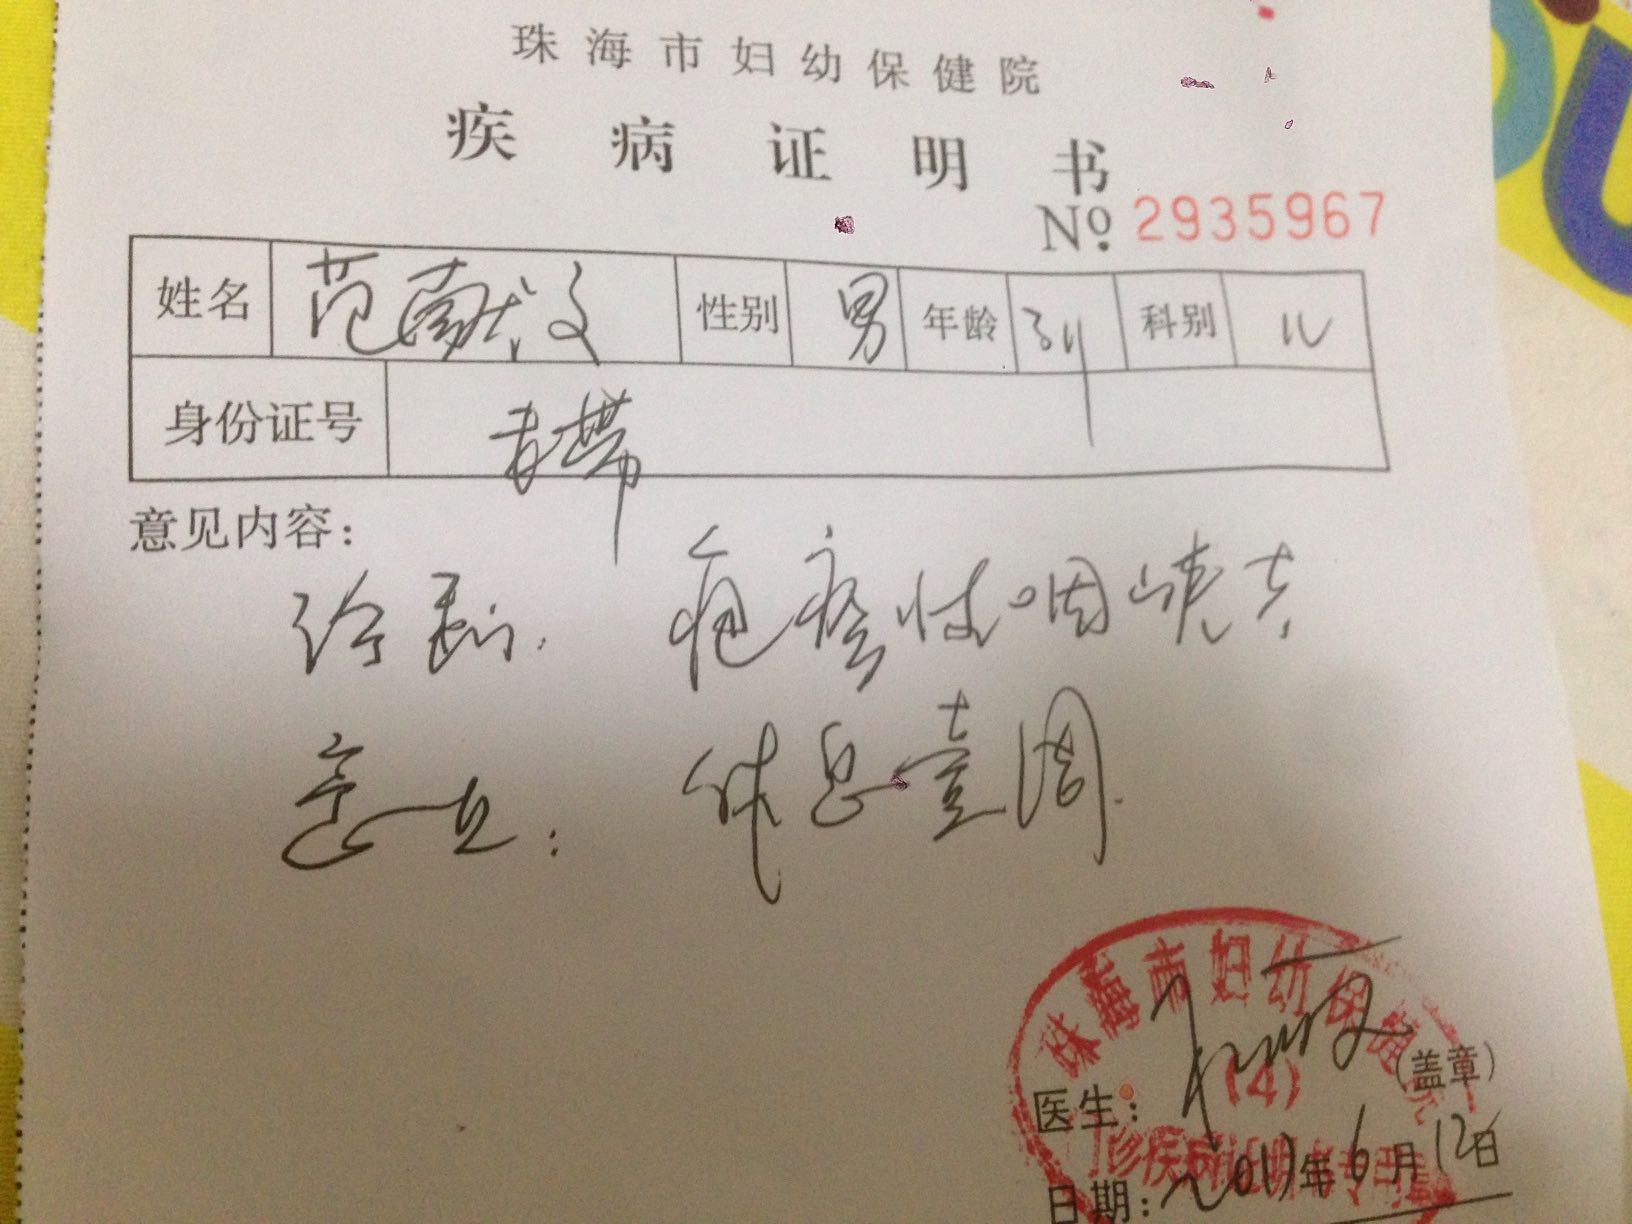 珠海市妇幼保健院
疾病证明书
No. 2935967
姓名 范献文 性别 男 年龄 科别 儿
身份证号 未带
意见内容:
诊断: 疱疹性咽峡炎
意见: 休息壹周.
珠海市妇幼保健院
(4)
医生: (盖章)
日期: 2017年6月12日